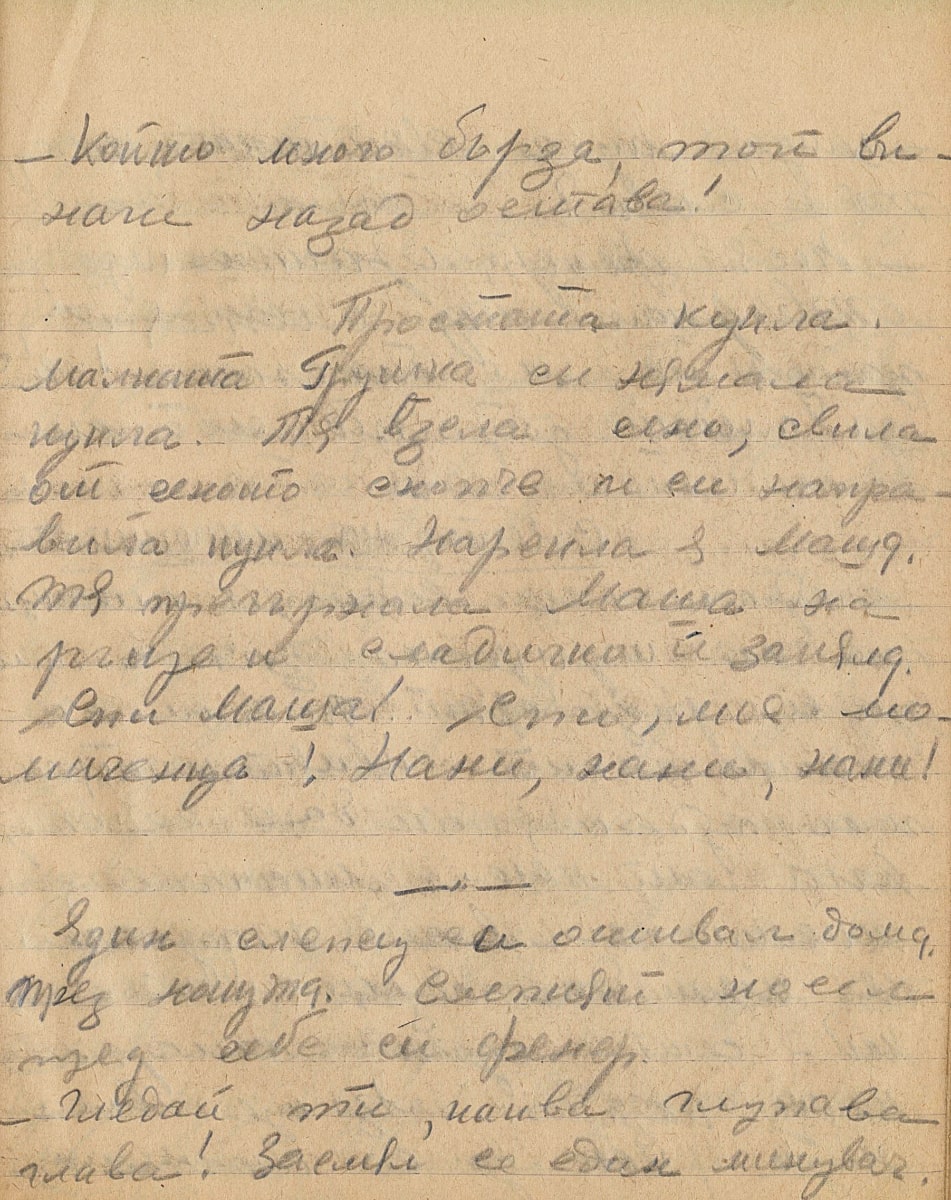 – Който много бърза, той ви-
наги назад остава!
Простата кукла.
Малката Грушка си нямала
кукла. Тя взела сено, свила
от сеното снопче и си напра-
вила кукла. Нарекла я Маша.
Тя прегърнала Маша на
ръце и сладичко й запяла.
Спи Маша! Спи, мое мо-
миченце! Нани, нани, нани!
—"—
Един слепец си отивал дома,
през нощта. Слепият носел
пред себе си фенер.
– Гледай ти, каква глупава
глава! Засмял се един минувач.